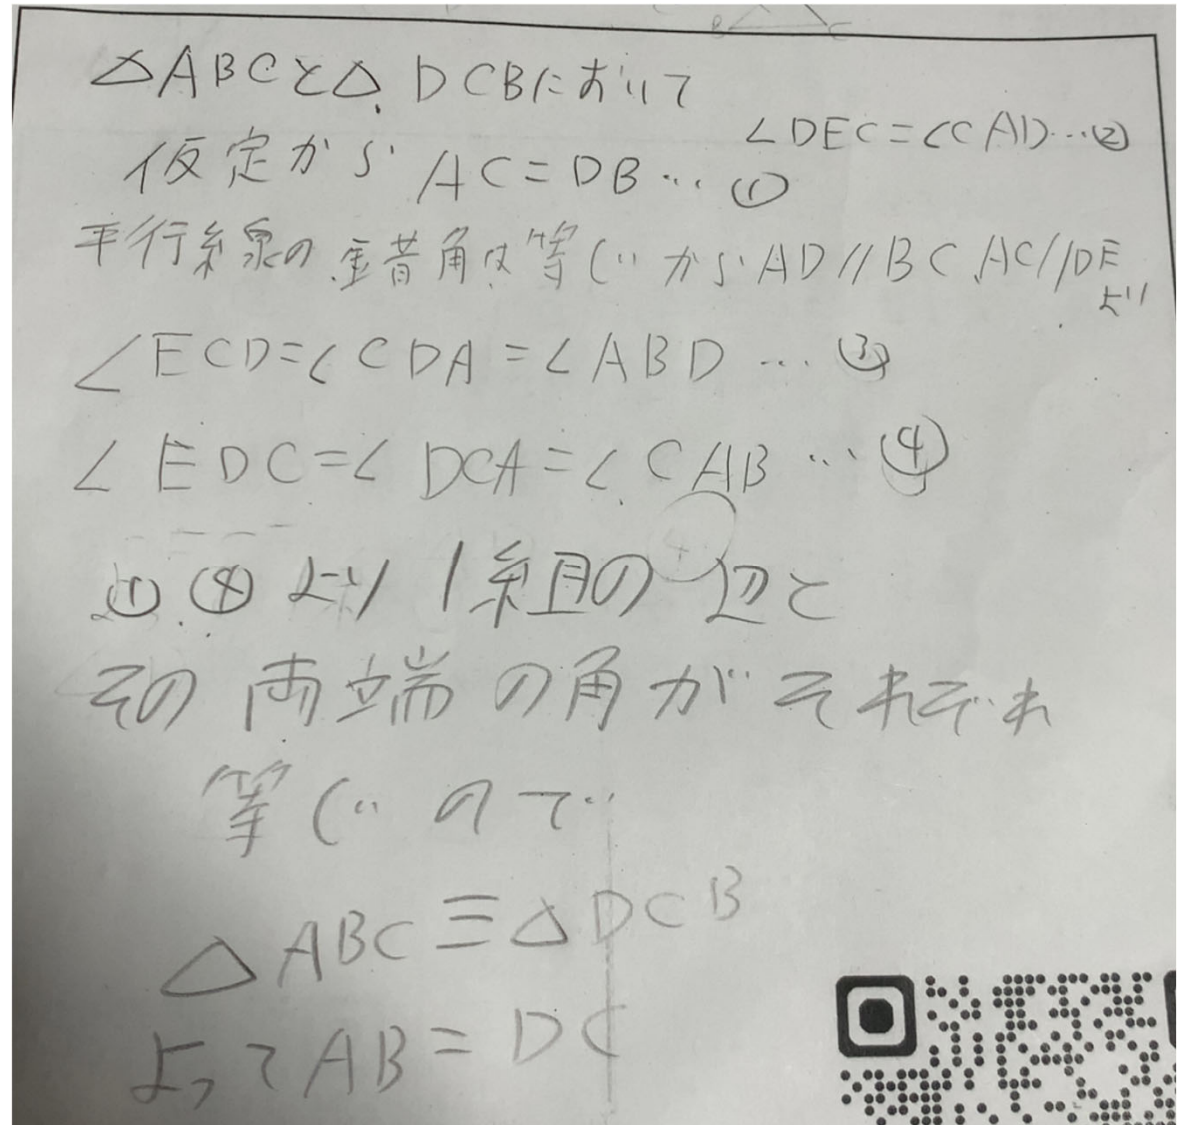 B C
△ABCと△DCBにおいて
∠DEC=∠CAD…②
仮定から AC=DB…①
平行線の錯角は等しいから AD//BC, AC//DE
より
∠ECD=∠CDA=∠ABD …③
∠EDC=∠DCA=∠CAB …④
①,④より 1組の辺と
その両端の角がそれぞれ
等しいので
△ABC≡△DCB
よってAB=DC